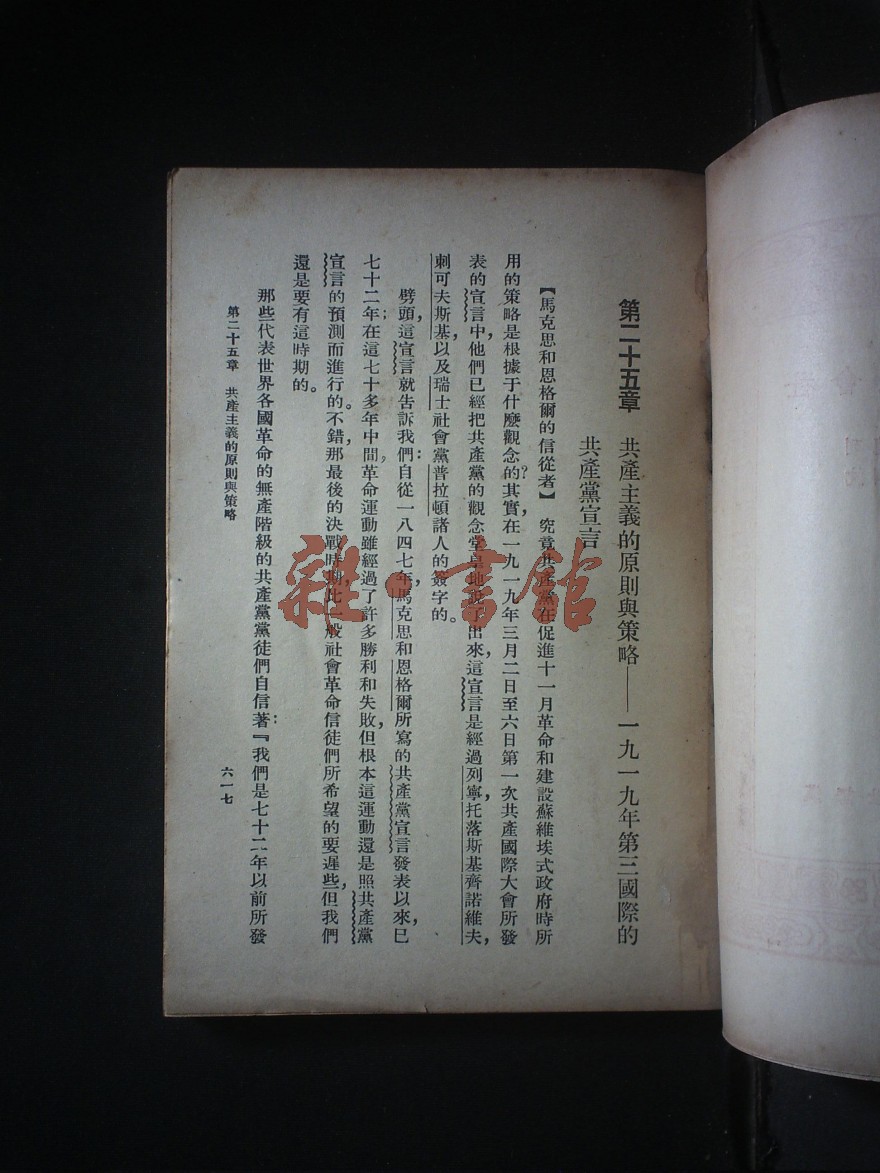 第二十五章　共產主義的原則與策略——一九一九年第三國際的
共產黨宣言
【馬克思和恩格爾的信從者】　究竟共產黨在促進十一月革命和建設蘇維埃式政府時所
用的策略是根據于什麼觀念的？其實，在一九一九年三月二日至六日第一次共產國際大會所發
表的宣言中，他們已經把共產黨的觀念堂皇地說了出來，這宣言是經過列寧，托落斯基齊諾維夫，
刺可夫斯基，以及瑞士社會黨普拉頓諸人的簽字的。
劈頭，這宣言就告訴我們：自從一八四七年，馬克思和恩格爾所寫的共產黨宣言發表以來，已
七十二年；在這七十多年中間，革命運動雖經過了許多勝利和失敗，但根本這運動還是照共產黨
宣言的預測而進行的。不錯，那最後的決戰時期，比一般社會革命信徒們所希望的要遲些，但我們
還是要有這時期的。
那些代表世界各國革命的無產階級的共產黨黨徒們自信著：『我們是七十二年以前所發
第二十五章　共產主義的原則與策略
六一七
雜·書館